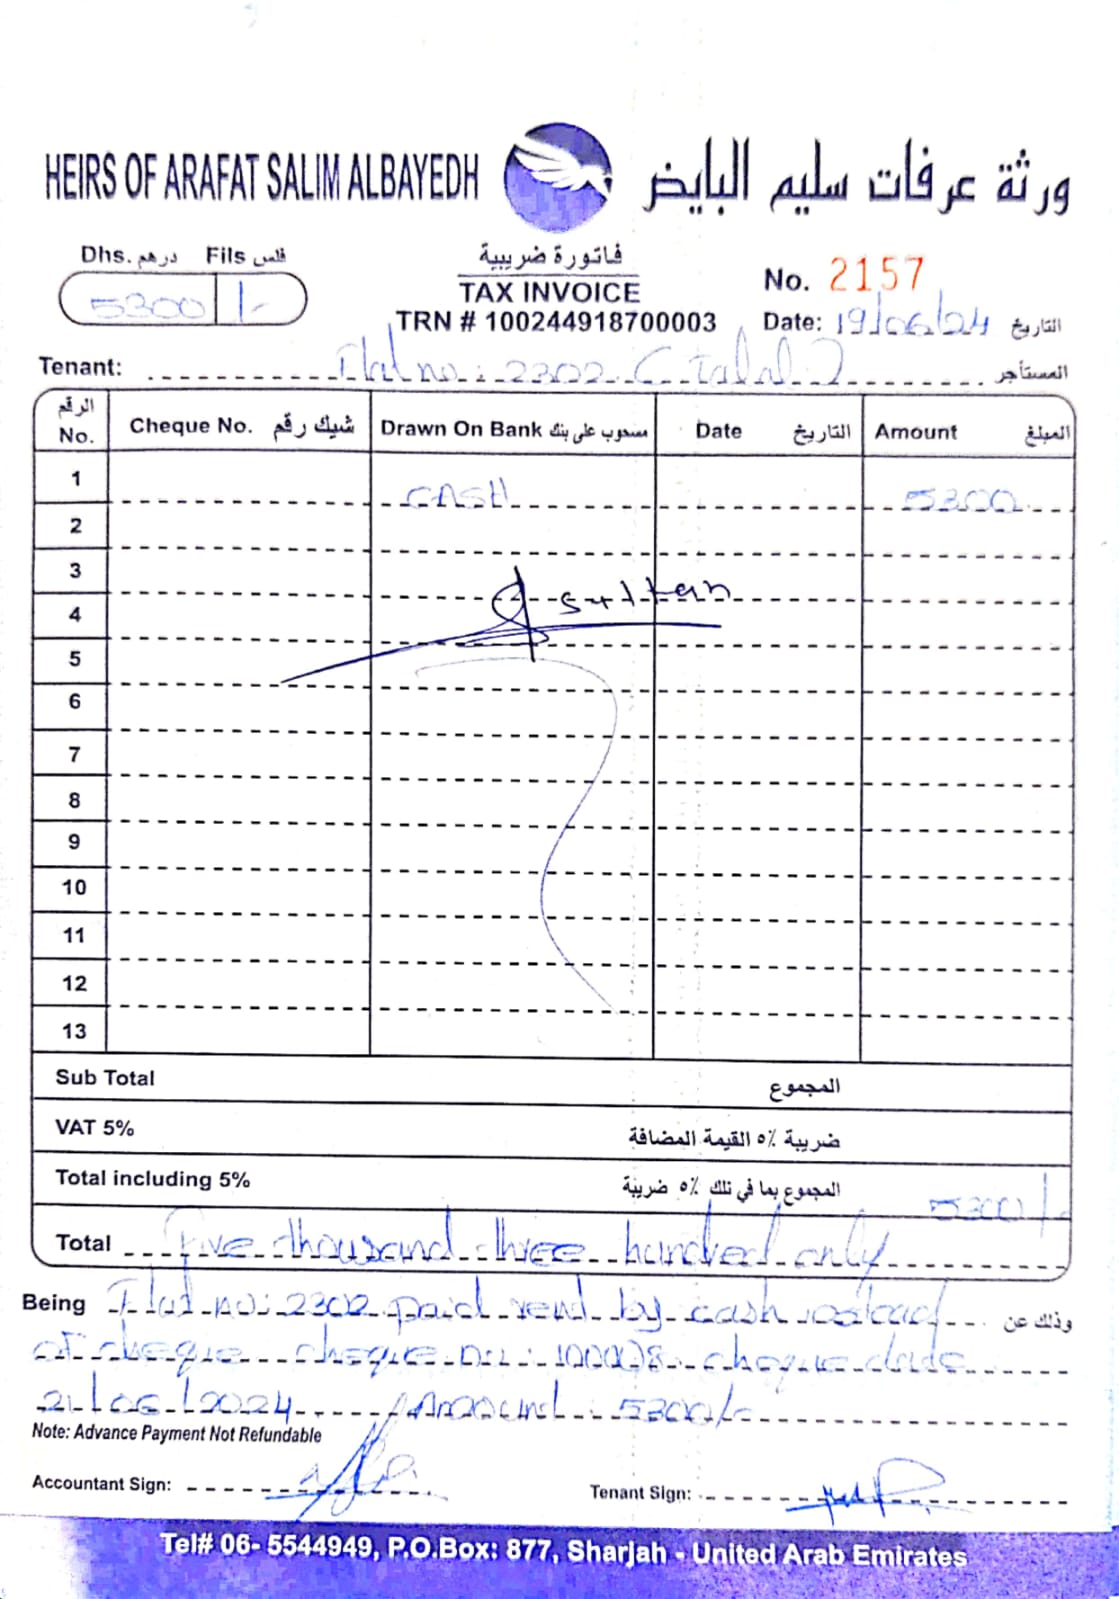 HEIRS OF ARAFAT SALIM ALBAYEDH ورثة عرفات سليم البايض
Dhs. درهم Fils فلس
5300 /-
فاتورة ضريبية
TAX INVOICE
TRN # 100244918700003
No. 2157
Date: 19/06/24 التاريخ
Tenant: Flat no: 2302 (Talal) المستأجر
الرقم No. Cheque No. شيك رقم Drawn On Bank مسحوب على بنك Date التاريخ Amount المبلغ
1 CASH 5300
2
3
4 sultan
5
6
7
8
9
10
11
12
13
Sub Total المجموع
VAT 5% ضريبة ٥٪ القيمة المضافة
Total including 5% المجموع بما في تلك ٥٪ ضريبة 5300/-
Total Five thousand three hundred only
Being Flat no: 2302 paid rent by cash instead وذلك عن
of cheque cheque no: 100008 cheque date
21/06/2024 Amount: 5300/-
Note: Advance Payment Not Refundable
Accountant Sign: Tenant Sign:
Tel# 06- 5544949, P.O.Box: 877, Sharjah - United Arab Emirates